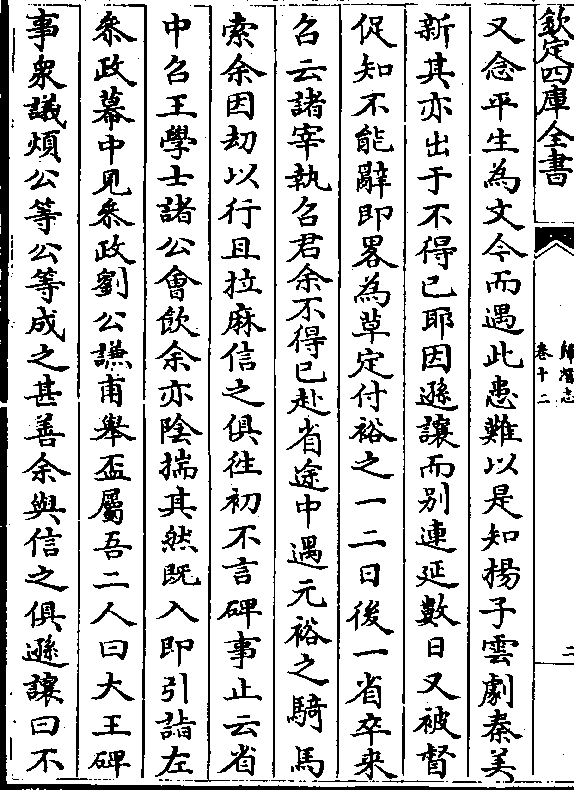 欽定四庫全書
歸潛志
卷十二
二
又念平生為文今而遇此患難以是知揚子雲劇秦美
新其亦出于不得已耶因遜讓而别連延數日又被督
促知不能辭即畧為草定付裕之一二日後一省卒來
召云諸宰執召君余不得已赴省途中遇元裕之騎馬
索余因刼以行且拉麻信之俱徃初不言碑事止云省
中召王學士諸公會飲余亦陰揣其然既入即引詣左
叅政幕中見叅政劉公謙甫舉盃屬吾二人曰大王碑
事衆議煩公等公等成之甚善余與信之俱遜讓曰不